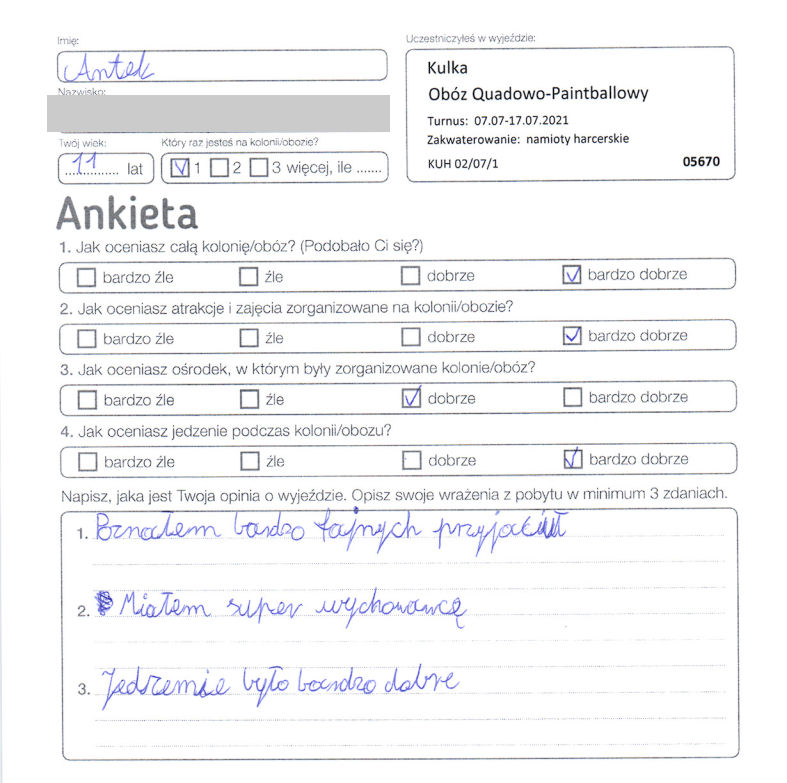 Imię:
Antek
Nazwisko:
Twój wiek:
11 lat
Który raz jesteś na kolonii/obozie?
1 2 3 więcej, ile .......
Uczestniczyłeś w wyjeździe:
Kulka
Obóz Quadowo-Paintballowy
Turnus: 07.07-17.07.2021
Zakwaterowanie: namioty harcerskie
KUH 02/07/1 05670
Ankieta
1. Jak oceniasz całą kolonię/obóz? (Podobało Ci się?)
bardzo źle źle dobrze bardzo dobrze
2. Jak oceniasz atrakcje i zajęcia zorganizowane na kolonii/obozie?
bardzo źle źle dobrze bardzo dobrze
3. Jak oceniasz ośrodek, w którym były zorganizowane kolonie/obóz?
bardzo źle źle dobrze bardzo dobrze
4. Jak oceniasz jedzenie podczas kolonii/obozu?
bardzo źle źle dobrze bardzo dobrze
Napisz, jaka jest Twoja opinia o wyjeździe. Opisz swoje wrażenia z pobytu w minimum 3 zdaniach.
1. Poznałem bardzo fajnych przyjaciół
2. Miałem super wychowawcę
3. Jedzenie było bardzo dobre